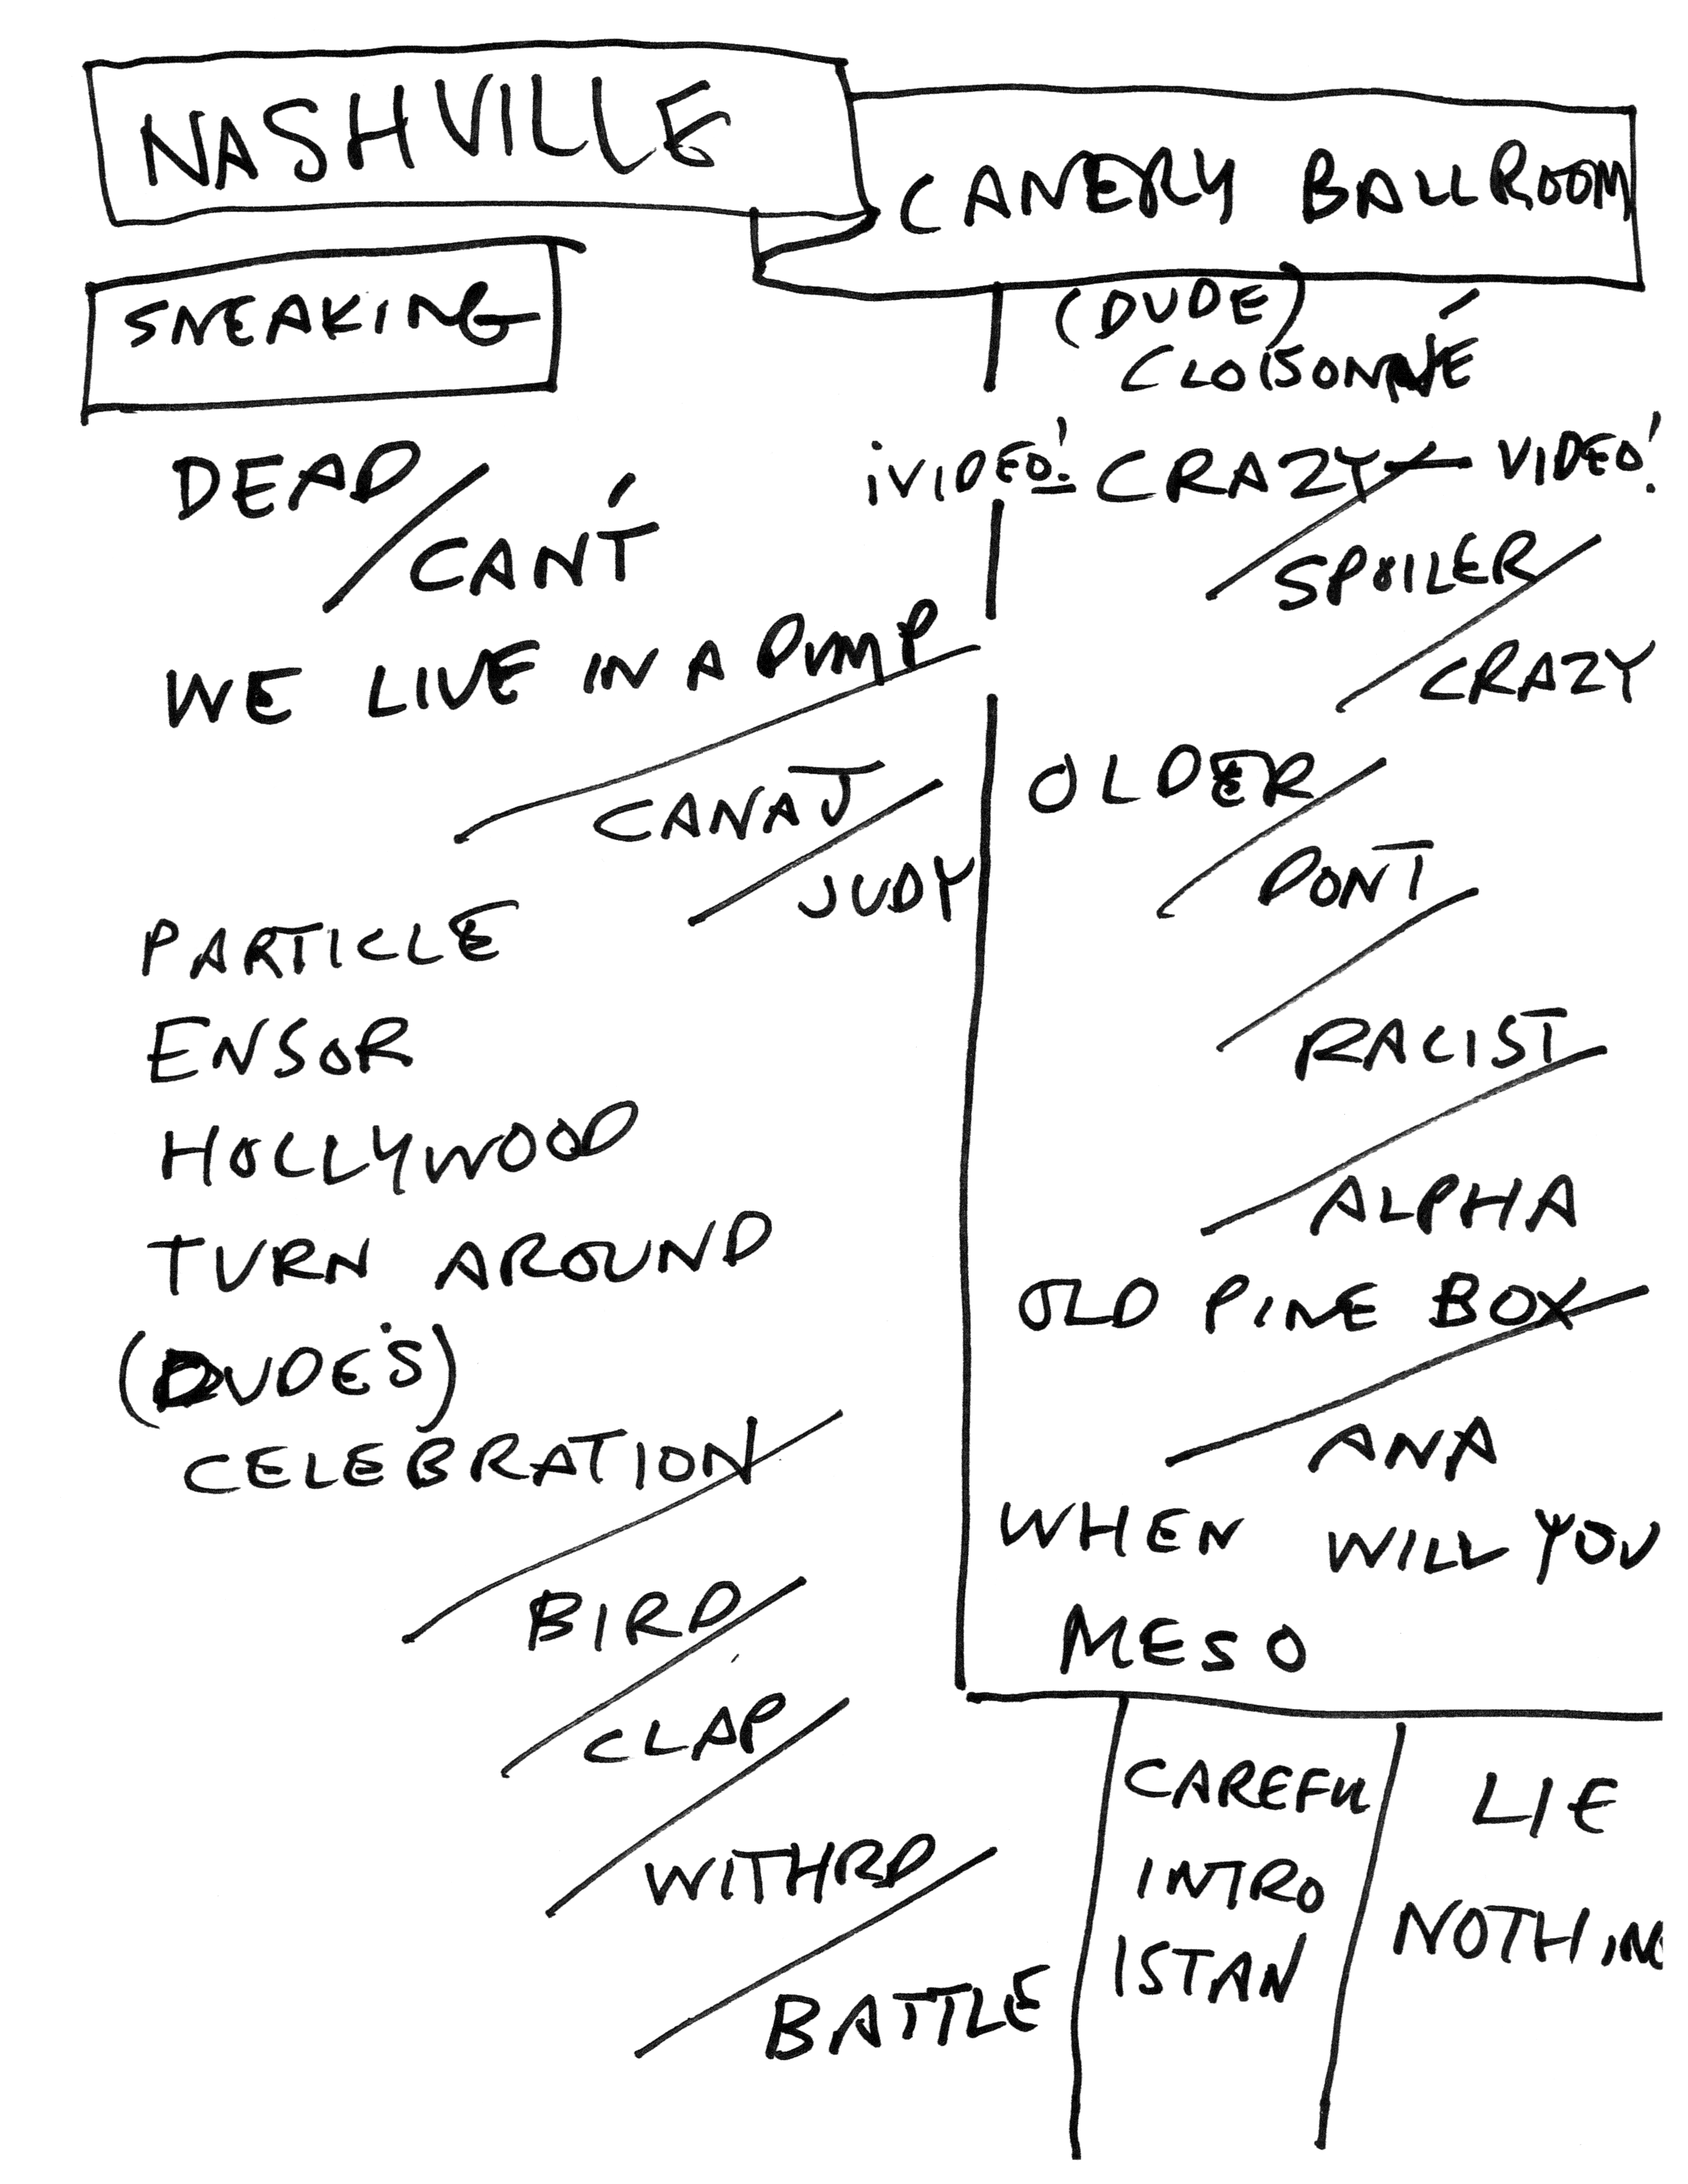 NASHVILLE
CANERY BALLROOM
SNEAKING
DEAD
CAN'T
WE LIVE IN A PUMP
CANAJ
JUDY
PARTICLE
ENSOR
HOLLYWOOD
TURN AROUND
(DUDE'S)
CELEBRATION
BIRD
CLAP
WITHRD
BATTLE
(DUDE)
CLOISONNÉ
¡VIDEO! CRAZY VIDEO!
SPOILER
CRAZY
OLDER
DONT
RACIST
ALPHA
OLD PINE BOX
ANA
WHEN WILL YOU
MESO
CAREFUL
INTRO
ISTAN
LIE
NOTHING